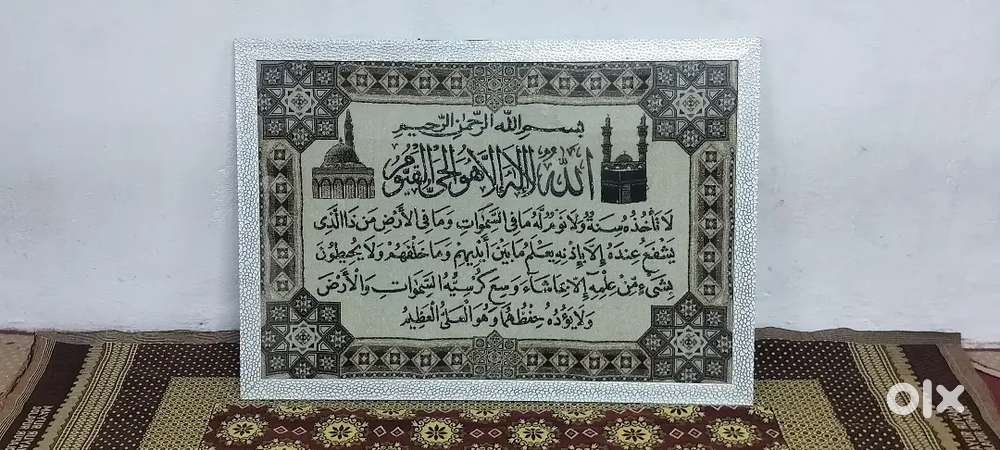 بسم الله الرحمن الرحيم
الله لا إله إلا هو الحي القيوم
لا تأخذه سنة ولا نوم له ما في السموات وما في الأرض من ذا الذي
يشفع عنده إلا بإذنه يعلم ما بين أيديهم وما خلفهم ولا يحيطون
بشيء من علمه إلا بما شاء وسع كرسيه السموات والأرض
ولا يؤده حفظهما وهو العلي العظيم
olx